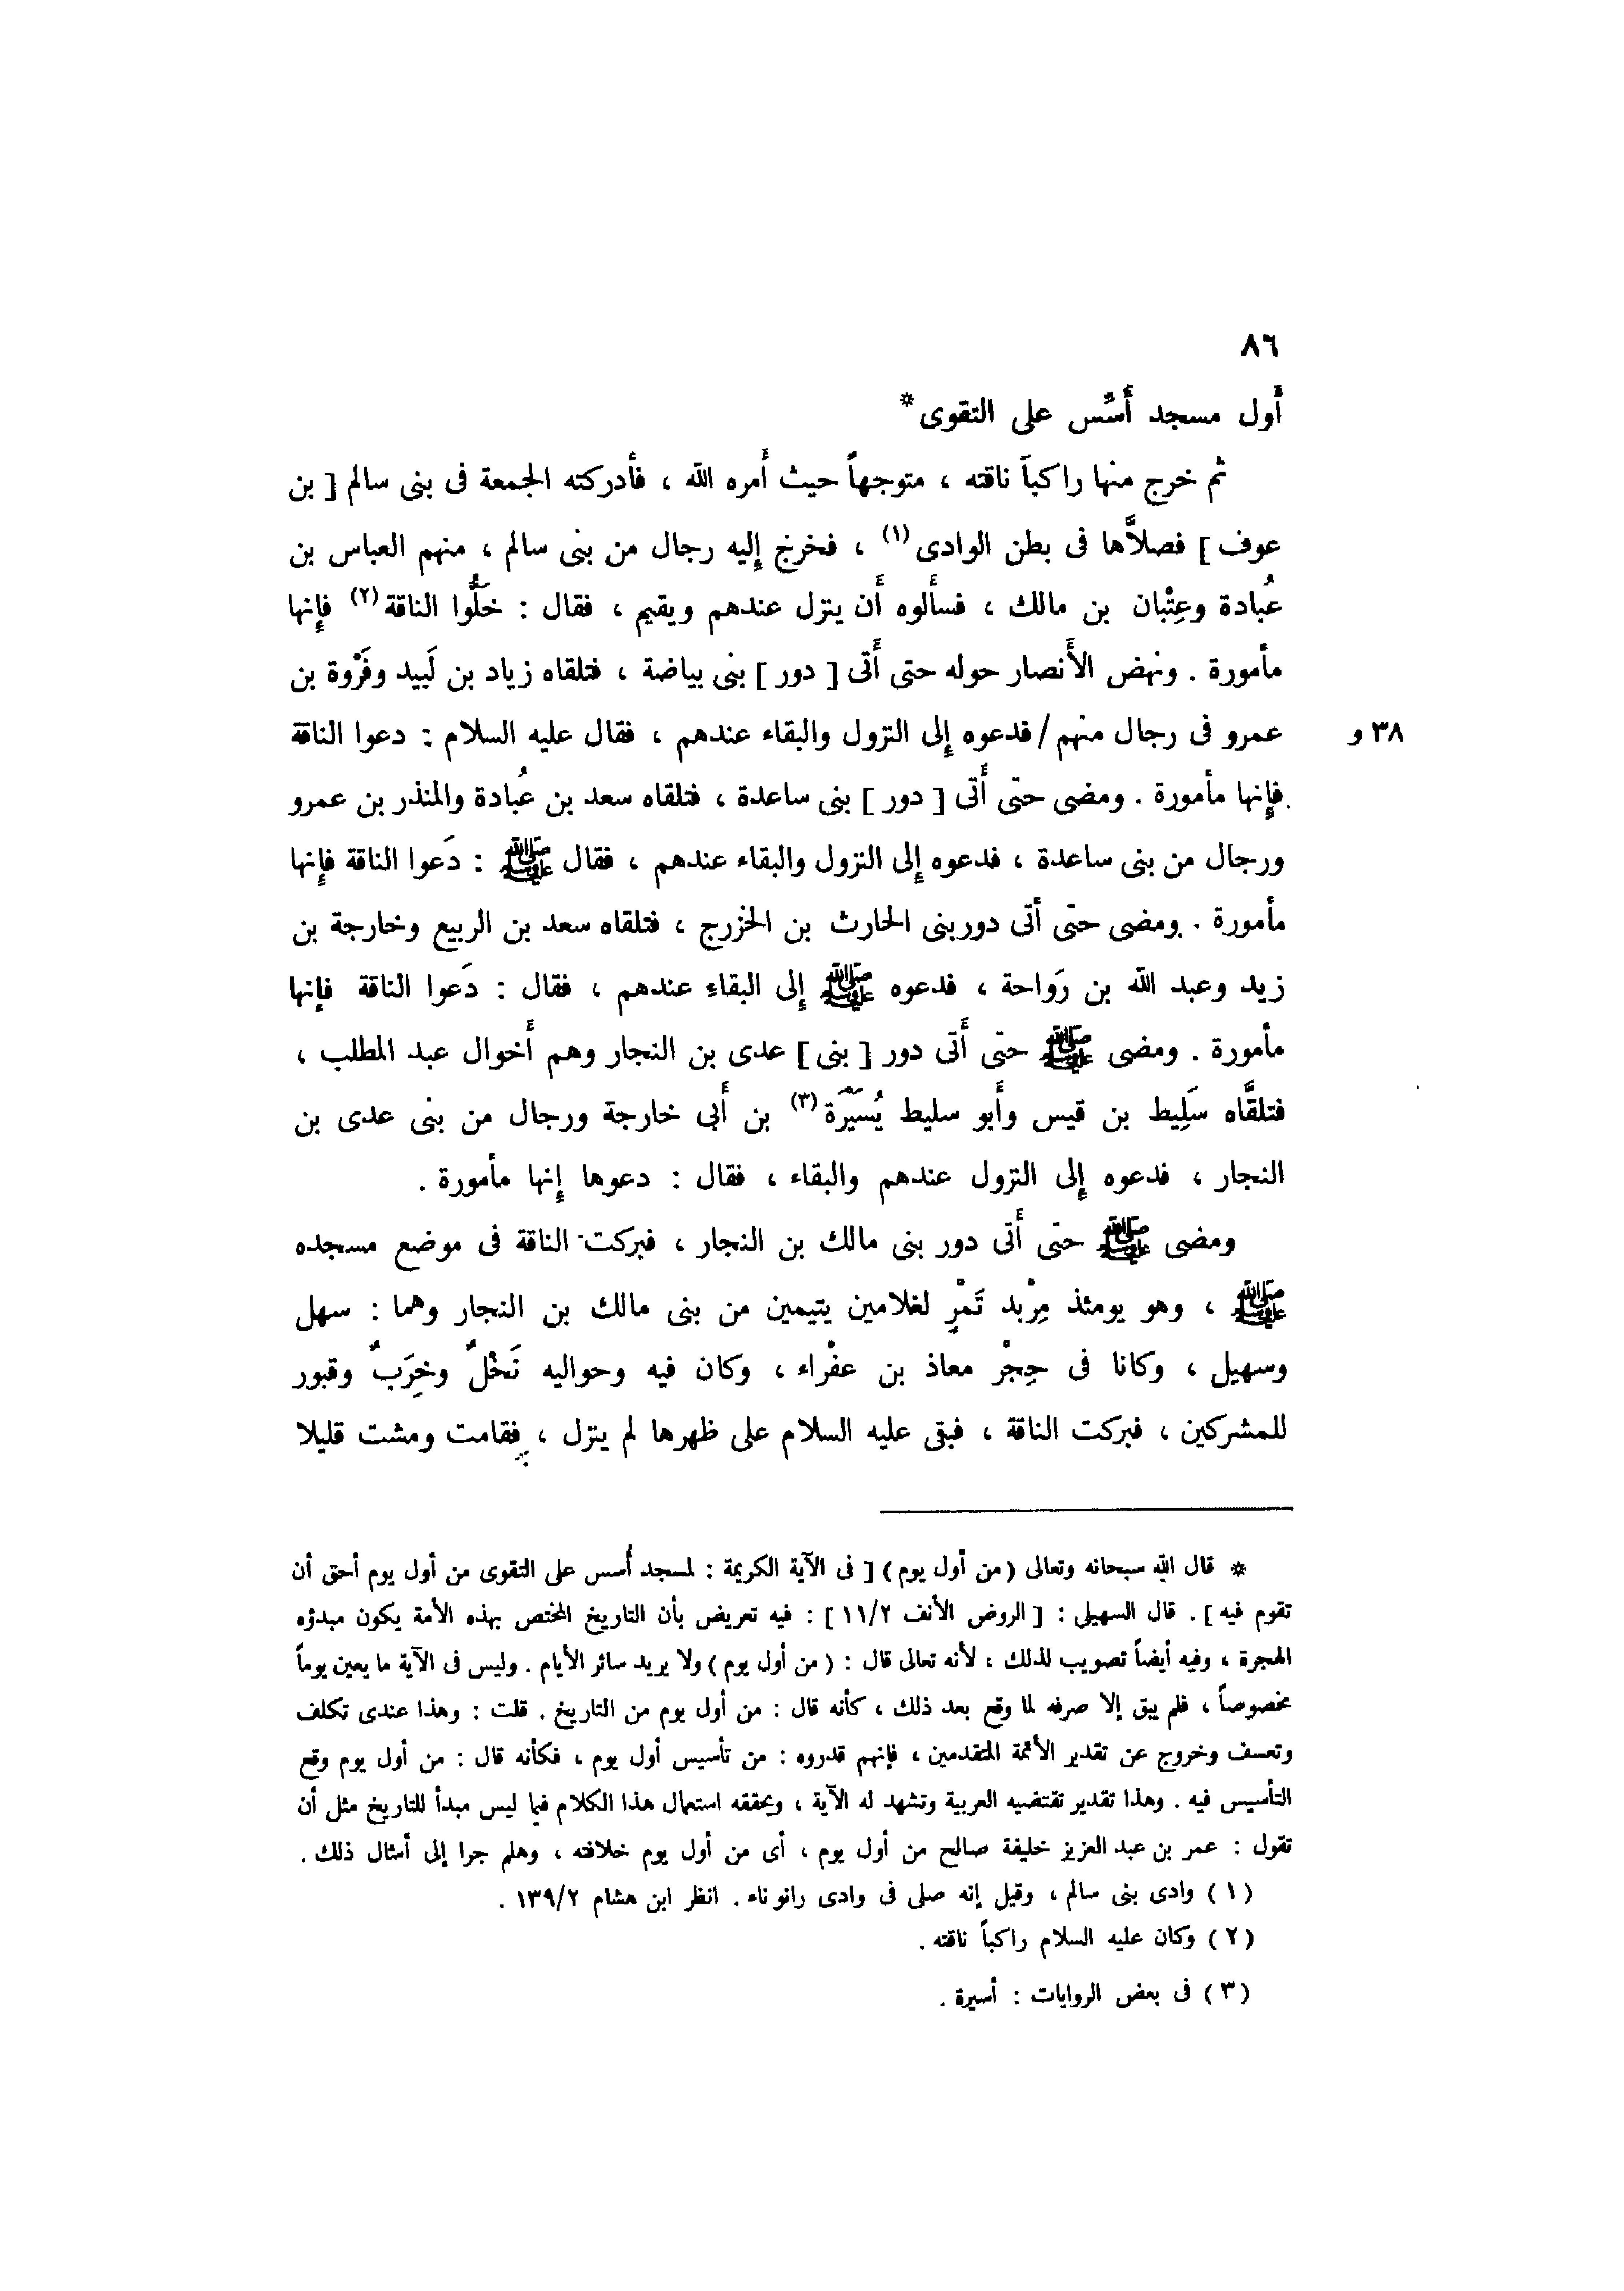 ٨٦
أَول مسجد أُسِّس على التقوى*
ثم خرج منها راكباً ناقته ، متوجهاً حيث أَمره الله ، فأدركته الجمعة فى بنى سالم [ بن
عوف ] فصلاَّها فى بطن الوادى (١) ، فخرج إليه رجال من بنى سالم ، منهم العباس بن
عُبادة وعِتْبان بن مالك ، فسأَلوه أَن ينزل عندهم ويقيم ، فقال : خَلُّوا الناقة (٢) فإِنها
مأمورة . ونهض الأَنصار حوله حتى أَتى [ دور ] بنى بياضة ، فتلقاه زياد بن لَبيد وفَرْوة بن
عمرو فى رجال منهم / فدعوه إِلى النزول والبقاء عندهم ، فقال عليه السلام : دعوا الناقة
٣٨ و
فإِنها مأمورة . ومضى حتّى أَتى [ دور ] بنى ساعدة ، فتلقاه سعد بن عُبادة والمنذر بن عمرو
ورجال من بنى ساعدة ، فدعوه إِلى النزول والبقاء عندهم ، فقال ﷺ : دَعوا الناقة فإِنها
مأمورة . ومضى حتّى أتى دور بنى الحارث بن الخزرج ، فتلقاه سعد بن الربيع وخارجة بن
زيد وعبد الله بن رَواحة ، فدعوه ﷺ إِلى البقاءِ عندهم ، فقال : دَعوا الناقة فإنها
مأمورة . ومضى ﷺ حتّى أَتى دور [ بنى ] عدى بن النجار وهم أَخوال عبد المطلب ،
فتلقَّاه سَلِيط بن قيس وأَبو سليط يُسَيْرَة (٣) بن أَبى خارجة ورجال من بنى عدى بن
النجار ، فدعوه إِلى النزول عندهم والبقاء ، فقال : دعوها إِنها مأمورة .
ومضى ﷺ حتّى أَتى دور بنى مالك بن النجار ، فبركت الناقة فى موضع مسجده
ﷺ ، وهو يومئذ مِرْبد تَمْرٍ لغلامين يتيمين من بنى مالك بن النجار وهما : سهل
وسهيل ، وكانا فى حِجْر معاذ بن عفْراء ، وكان فيه وحواليه نَخْلٌ وخِرَبٌ وقبور
للمشركين ، فبركت الناقة ، فبقى عليه السلام على ظهرها لم ينزل ، فقامت ومشت قليلا
* قال الله سبحانه وتعالى ( من أول يوم ) [ فى الآية الكريمة : لمسجد أُسس على التقوى من أول يوم أحق أن
تقوم فيه ] . قال السهيلى : [ الروض الأنف ١١/٢ ] : فيه تعريض بأن التاريخ المختص بهذه الأمة يكون مبدؤه
الهجرة ، وفيه أيضاً تصويب لذلك ، لأنه تعالى قال : ( من أول يوم ) ولا يريد سائر الأيام . وليس فى الآية ما يعين يوماً
مخصوصاً ، فلم يبق إلا صرفه لما وقع بعد ذلك ، كأنه قال : من أول يوم من التاريخ . قلت : وهذا عندى تكلف
وتعسف وخروج عن تقدير الأئمة المتقدمين ، فإنهم قدروه : من تأسيس أول يوم ، فكأنه قال : من أول يوم وقع
التأسيس فيه . وهذا تقدير تقتضيه العربية وتشهد له الآية ، ويحققه استعمال هذا الكلام فيما ليس مبدأ للتاريخ مثل أن
تقول : عمر بن عبد العزيز خليفة صالح من أول يوم ، أى من أول يوم خلافته ، وهلم جرا إلى أمثال ذلك .
( ١ ) وادى بنى سالم ، وقيل إنه صلى فى وادى رانوناء . انظر ابن هشام ١٣٩/٢ .
( ٢ ) وكان عليه السلام راكباً ناقته .
( ٣ ) فى بعض الروايات : أسيرة .